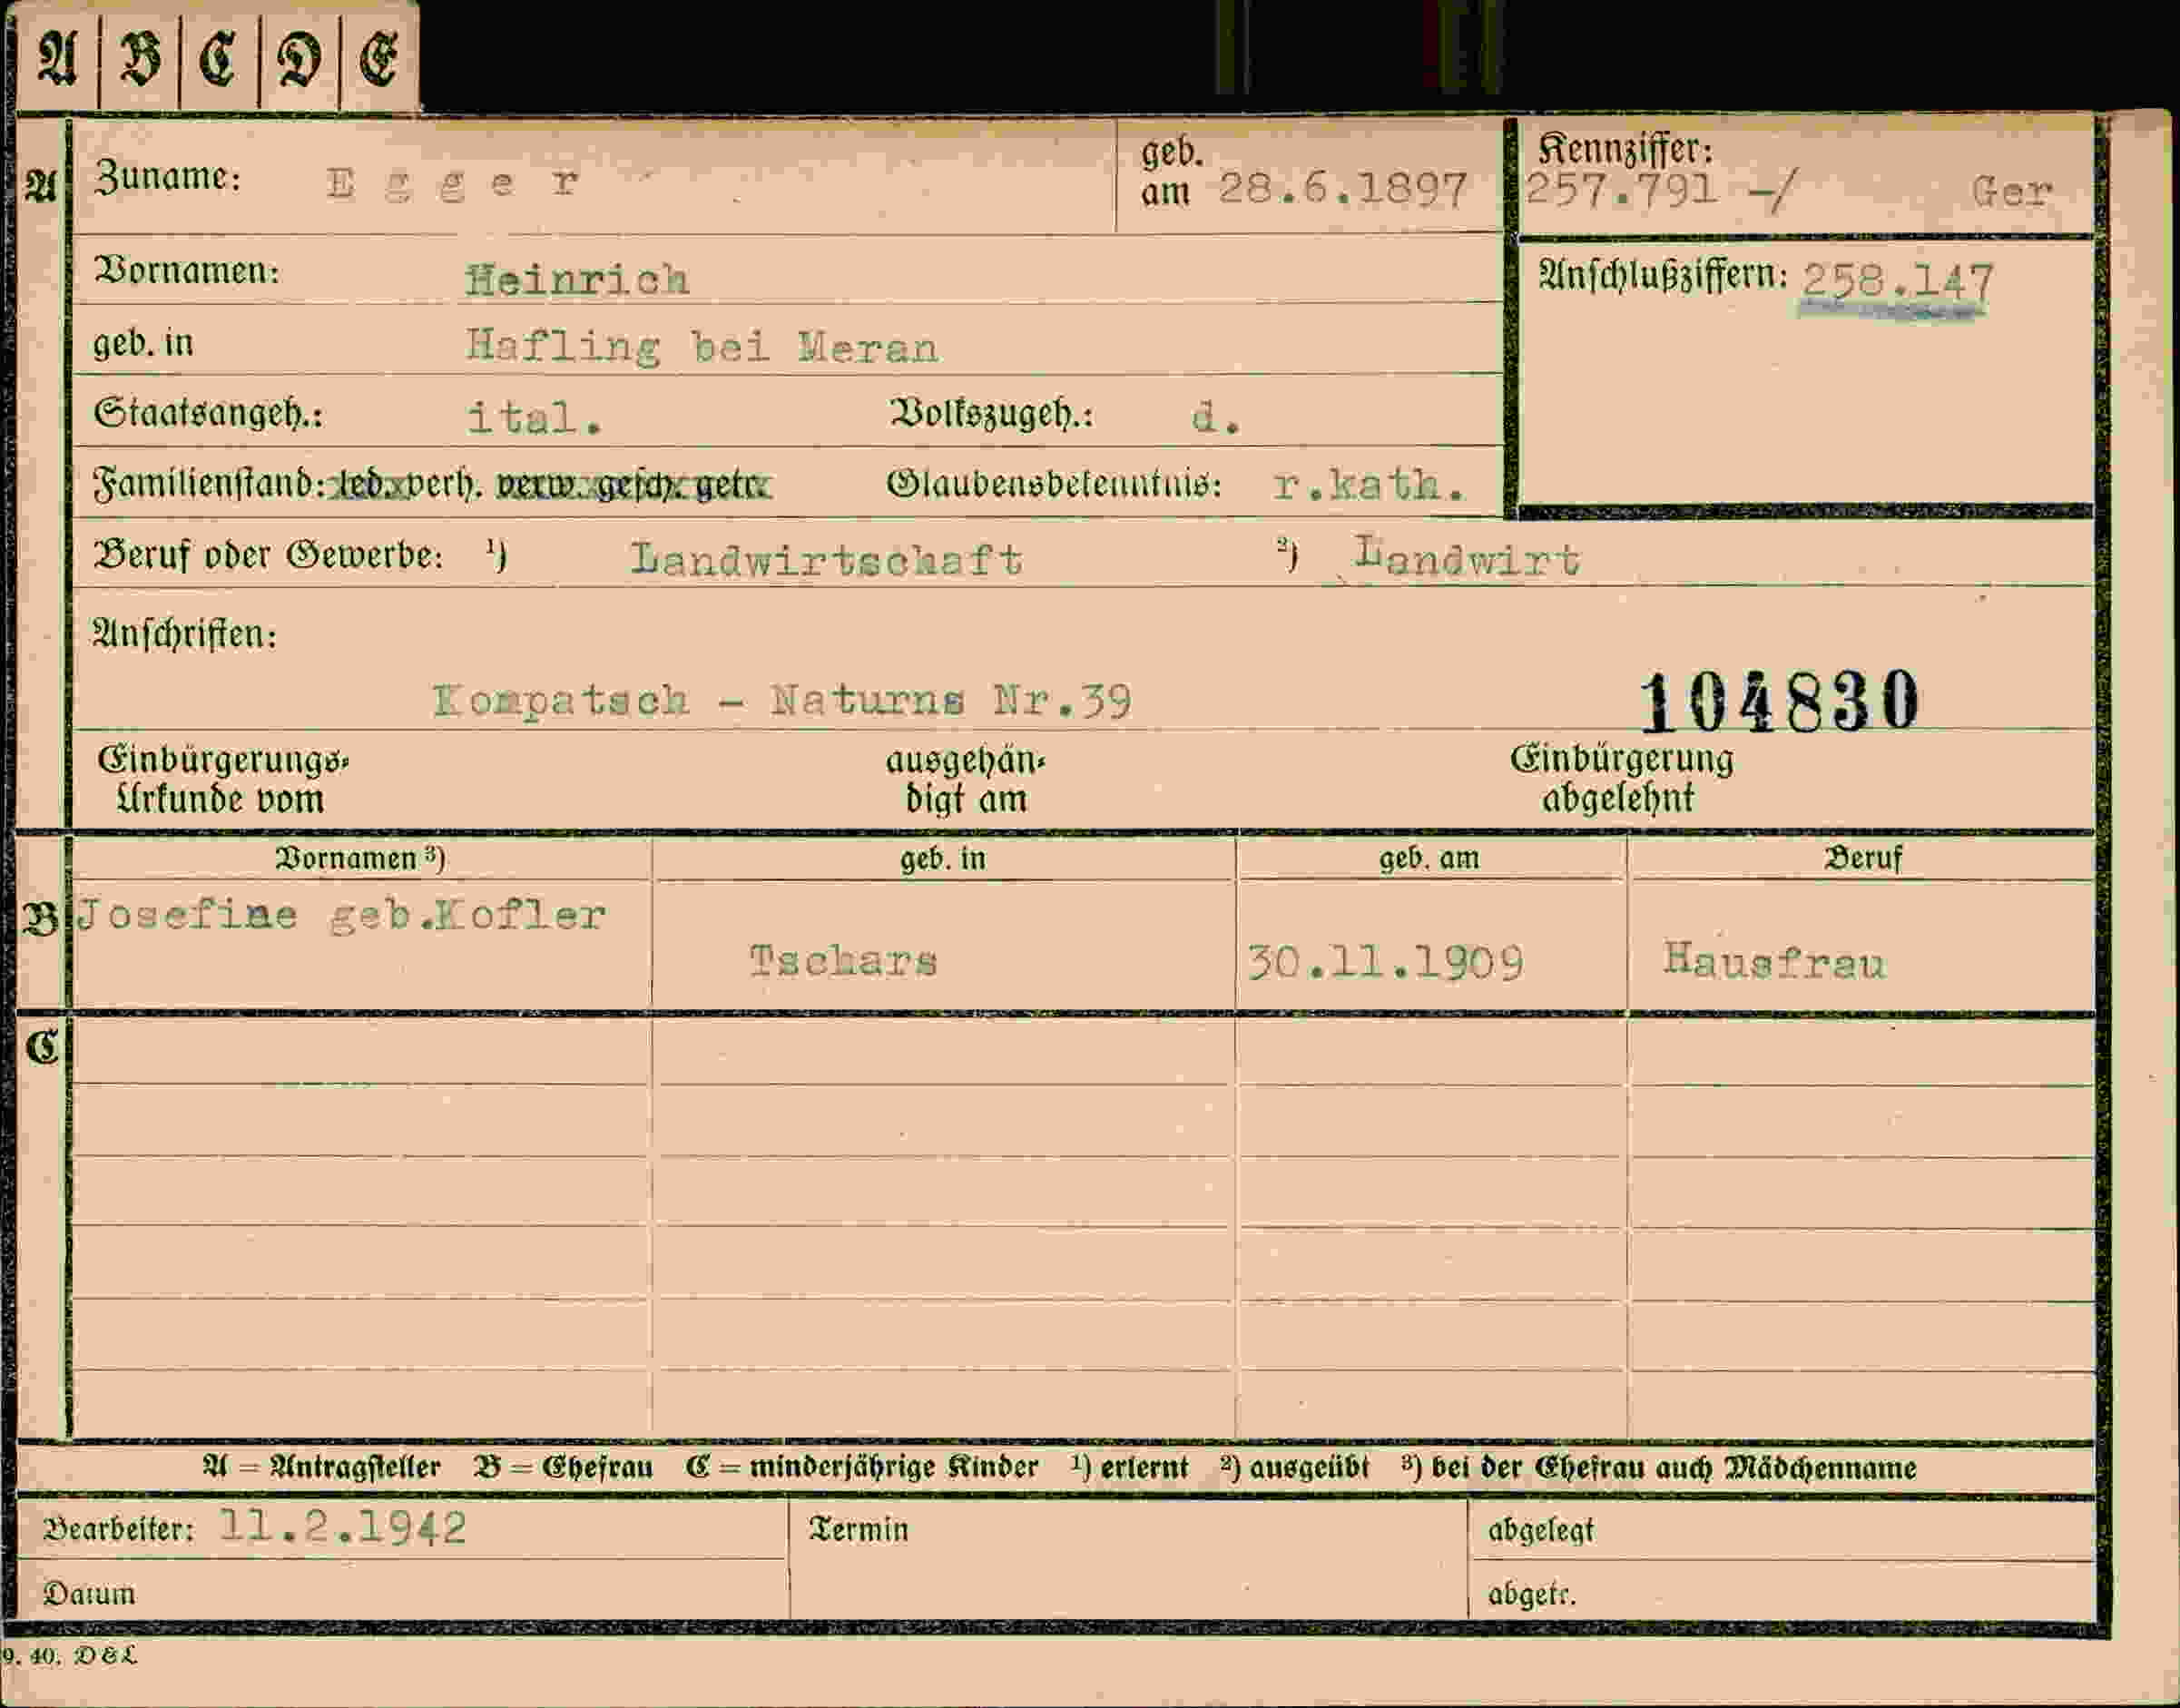 A B C D E
A Zuname: Egger geb. am 28.6.1897 Kennziffer: 257.791 -/ Ger
Vornamen: Heinrich Anschlußziffern: 258.147
geb. in Hafling bei Meran
Staatsangeh.: ital. Volkszugeh.: d.
Familienstand: led. verh. verw. gesch. getr. Glaubensbekenntnis: r.kath.
Beruf oder Gewerbe: ¹) Landwirtschaft ²) Landwirt
Anschriften:
Kompatsch - Naturns Nr.39 104830
Einbürgerungs- ausgehän- Einbürgerung
Urkunde vom digt am abgelehnt
Vornamen ³) geb. in geb. am Beruf
B Josefine geb.Kofler
Tschars 30.11.1909 Hausfrau
C
A = Antragsteller B = Ehefrau C = minderjährige Kinder ¹) erlernt ²) ausgeübt ³) bei der Ehefrau auch Mädchenname
Bearbeiter: 11.2.1942 Termin abgelegt
Datum abgetr.
9. 40. D & L